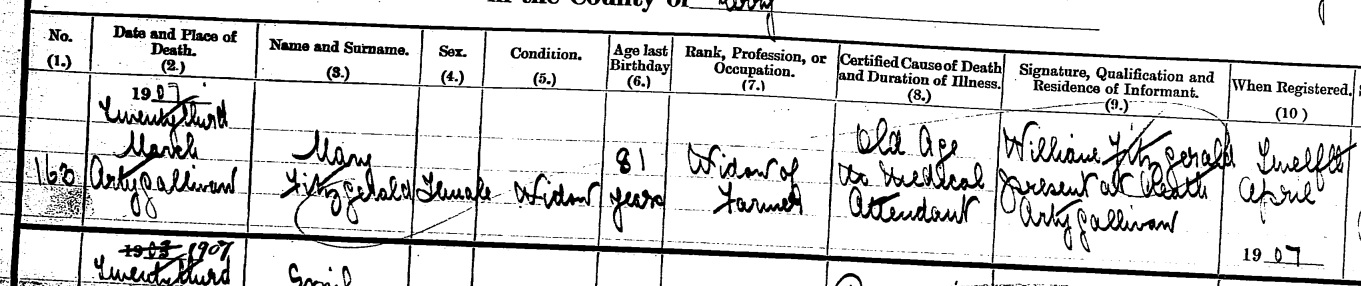 in the County of Kerry
No. (1.)
Date and Place of Death. (2.)
Name and Surname. (3.)
Sex. (4.)
Condition. (5.)
Age last Birthday (6.)
Rank, Profession, or Occupation. (7.)
Certified Cause of Death and Duration of Illness. (8.)
Signature, Qualification and Residence of Informant. (9.)
When Registered. (10)
163
1907
Twentythird
March
Artygallivan
Mary
Fitzgerald
Female
Widow
81
years
Widow of
Farmer
Old Age
No Medical
Attendant
William Fitzgerald
present at Death
Artygallivan
Twelfth
April
1907
1903 1907
Twentythird